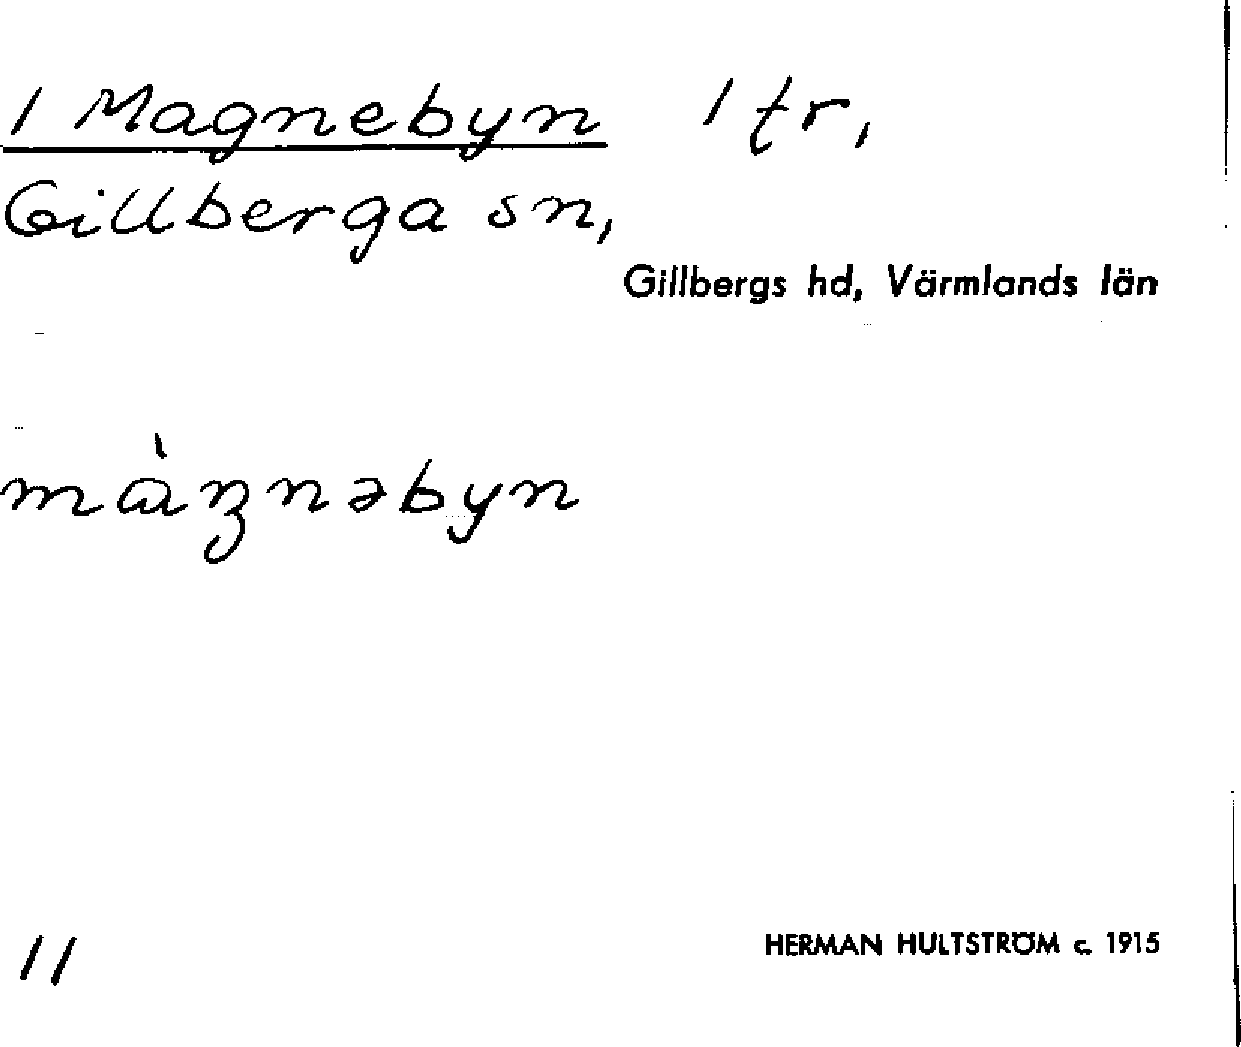 1 Magnebyn 1 tr,
Gillberga sn,
Gillbergs hd, Värmlands län
màŋnəbyn
11
HERMAN HULTSTRÖM c. 1915